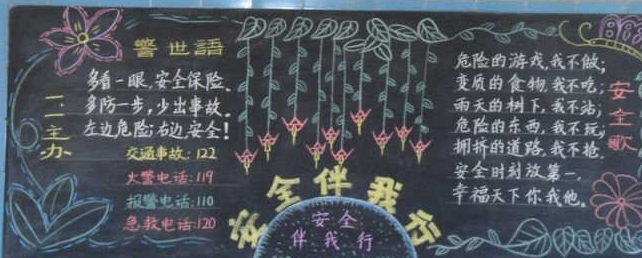 警世語
多看一眼,安全保险、
多防一步,少出事故、
左边危险;右边安全!
二一主办
交通事故:122
火警电话:119
报警电话:110
急救电话:120
安全伴我行
安全
伴我行
危险的游戏,我不做;
变质的食物,我不吃;
雨天的树下,我不站;
危险的东西,我不玩;
拥挤的道路,我不抢.
安全时刻放第一,
幸福天下你我他。
安全歌